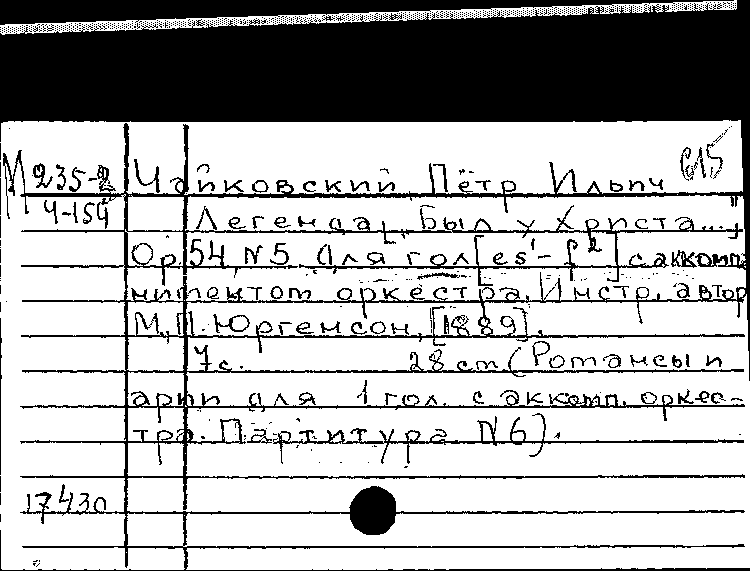 М 235-2 Чайковский, Пётр Ильич 615
Ч-154 Легенда [„Был у Христа...”]
Op. 54 N 5. Для гол [es¹ - f²] с аккомпа
ниментом оркестра. Инстр. автор
М., П. Юргенсон, [1889].
7 с. 28 см (Романсы и
арии для 1 гол. с аккомп. оркес-
тра. Партитура N 6).
17430